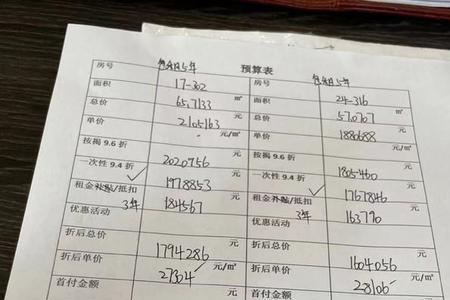 预算表
房号 包租5年 17-302 房号 包租5年 24-316
面积 65.7133 ㎡ 面积 57.0707 ㎡
总价 2105163 元 总价 1880688 元
单价 元/㎡ 单价 元/㎡
按揭 9.6 折 2020956 元 按揭 9.6 折 1805460 元
一次性 9.4 折 1978853 元 一次性 9.4 折 1767846 元
租金补贴/抵扣 3年 184567 元 租金补贴/抵扣 3年 163790 元
优惠活动 优惠活动
折后总价 1794286 元 折后总价 1604056 元
折后单价 27304 元/㎡ 折后单价 28106 元/㎡
首付金额 元 首付金额 元